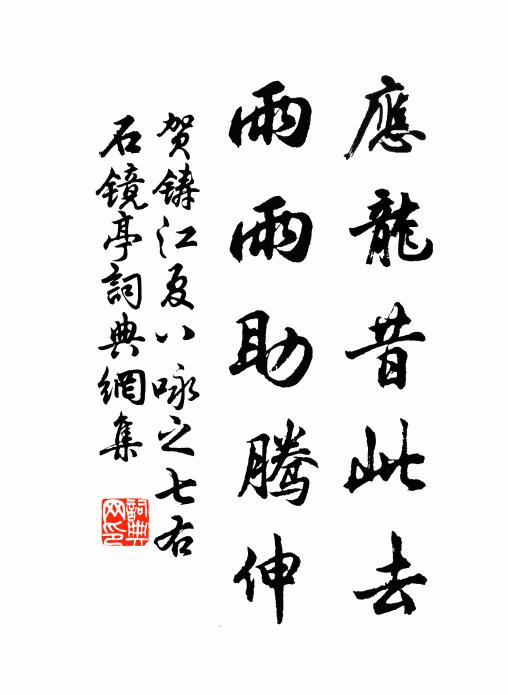 應龍昔此去
雨雨助騰伸
贺鑄江夏八咏之七右
石镜亭詞典網集
詞典网印